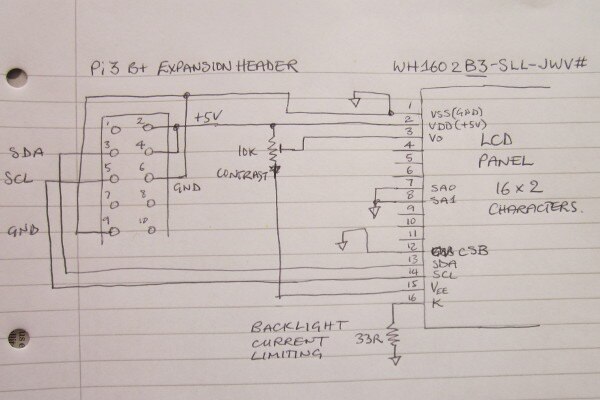 Pi 3 B+ EXPANSION HEADER
WH1602B3-SLL-JWV#
1 2
3 4
5 6
7 8
9 10
SDA
SCL
GND
+5V
GND
10K
CONTRAST
1
2 VSS (GND)
3 VDD (+5V)
4 VO
5
6
7 SA0
8 SA1
9
10
11
12 CSB
13 SDA
14 SCL
15 VEE
16 K
LCD
PANEL
16 x 2
CHARACTERS.
BACKLIGHT
CURRENT
LIMITING
33R